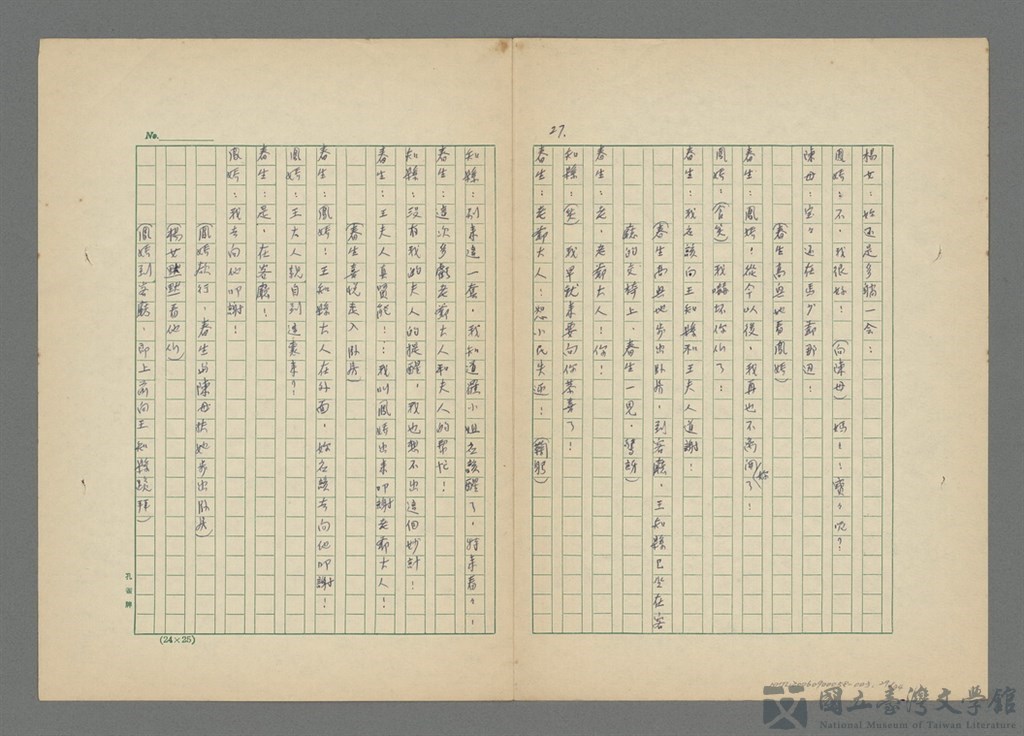 27.
楊女：妳还是多躺一会：
鳳嬌：不，我很好！（向陳母）媽！：寶々呢？
陳母：宝々还在馬夕都那边：
（春生高兴地看鳳嬌）
春生：鳳嬌！從今以後，我再也不离開（妳）了！
鳳嬌：（含笑）我嚇坏你们了：
春生：我应該向王知縣和王夫人道謝：
（春生高兴地步出卧房，到客廳，王知縣已坐在客
廳的交椅上，春生一見，驚訝）
春生：老，老爺大人！你！
知縣：（笑）我早就来要向你恭喜了！
春生：老爺大人：恕小民失迎！（鞠躬）
知縣：别来這一套，我知道羅小姐应該醒了，特来看々！
春生：這次多虧老爺大人和夫人的帮忙！
知縣：没有我的夫人的提醒，我也想不出這個妙計！
春生：王夫人真賢能！：我叫鳳嬌出来叩謝老爺大人！
（春生喜悦走入卧房）
春生：鳳嬌：王知縣大人在外面，妳应該去向他叩謝！
鳳嬌：王大人親自到這裏来？
春生：是，在客廳！
鳳嬌：我去向他叩謝！
（鳳嬌欲行，春生与陳母扶她步出卧房）
（楊女默默看他们）
（鳳嬌到客廳，即上前向王知縣跪拜）
No.
孔雀牌
(24×25)
國立臺灣文學館
National Museum of Taiwan Literature